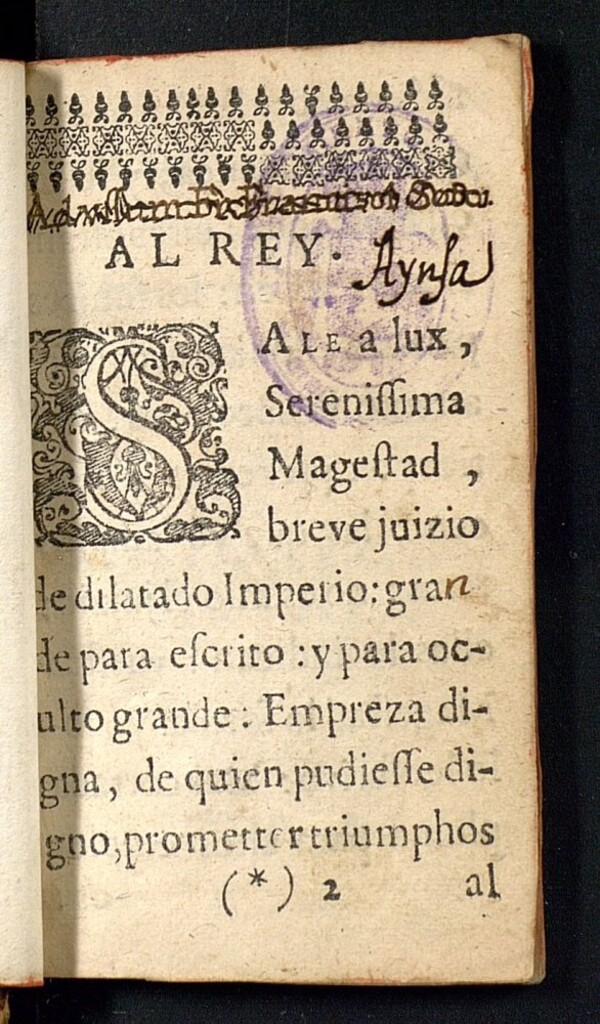 AL REY.
Aynſa
SALE a lux,
Sereniſſima
Mageſtad ,
breve juizio
de dilatado Imperio: gran
de para eſcrito : y para oc-
ulto grande : Empreza di-
gna, de quien pudieſſe di-
gno, prometter triumphos
(*) 2 al